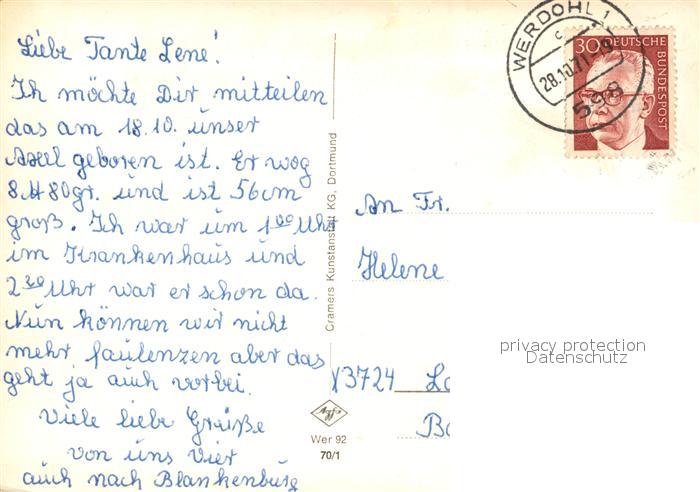 Liebe Tante Lene!
Ich möchte Dir mitteilen
das am 18.10. unser
Axel geboren ist. Er wog
8 ℔ 80gr. und ist 56cm
groß. Ich war um 1⁰⁰ Uhr
im Krankenhaus und
2³⁰ Uhr war er schon da.
Nun können wir nicht
mehr faulenzen aber das
geht ja auch vorbei.
Viele liebe Grüße
von uns vier
auch nach Blankenburg
Cramers Kunstanstalt KG, Dortmund
Wer 92
70/1
WERDOHL 1
c
28.10.71
598
30 DEUTSCHE
BUNDESPOST
An Fr.
Helene
privacy protection
Datenschutz
3724